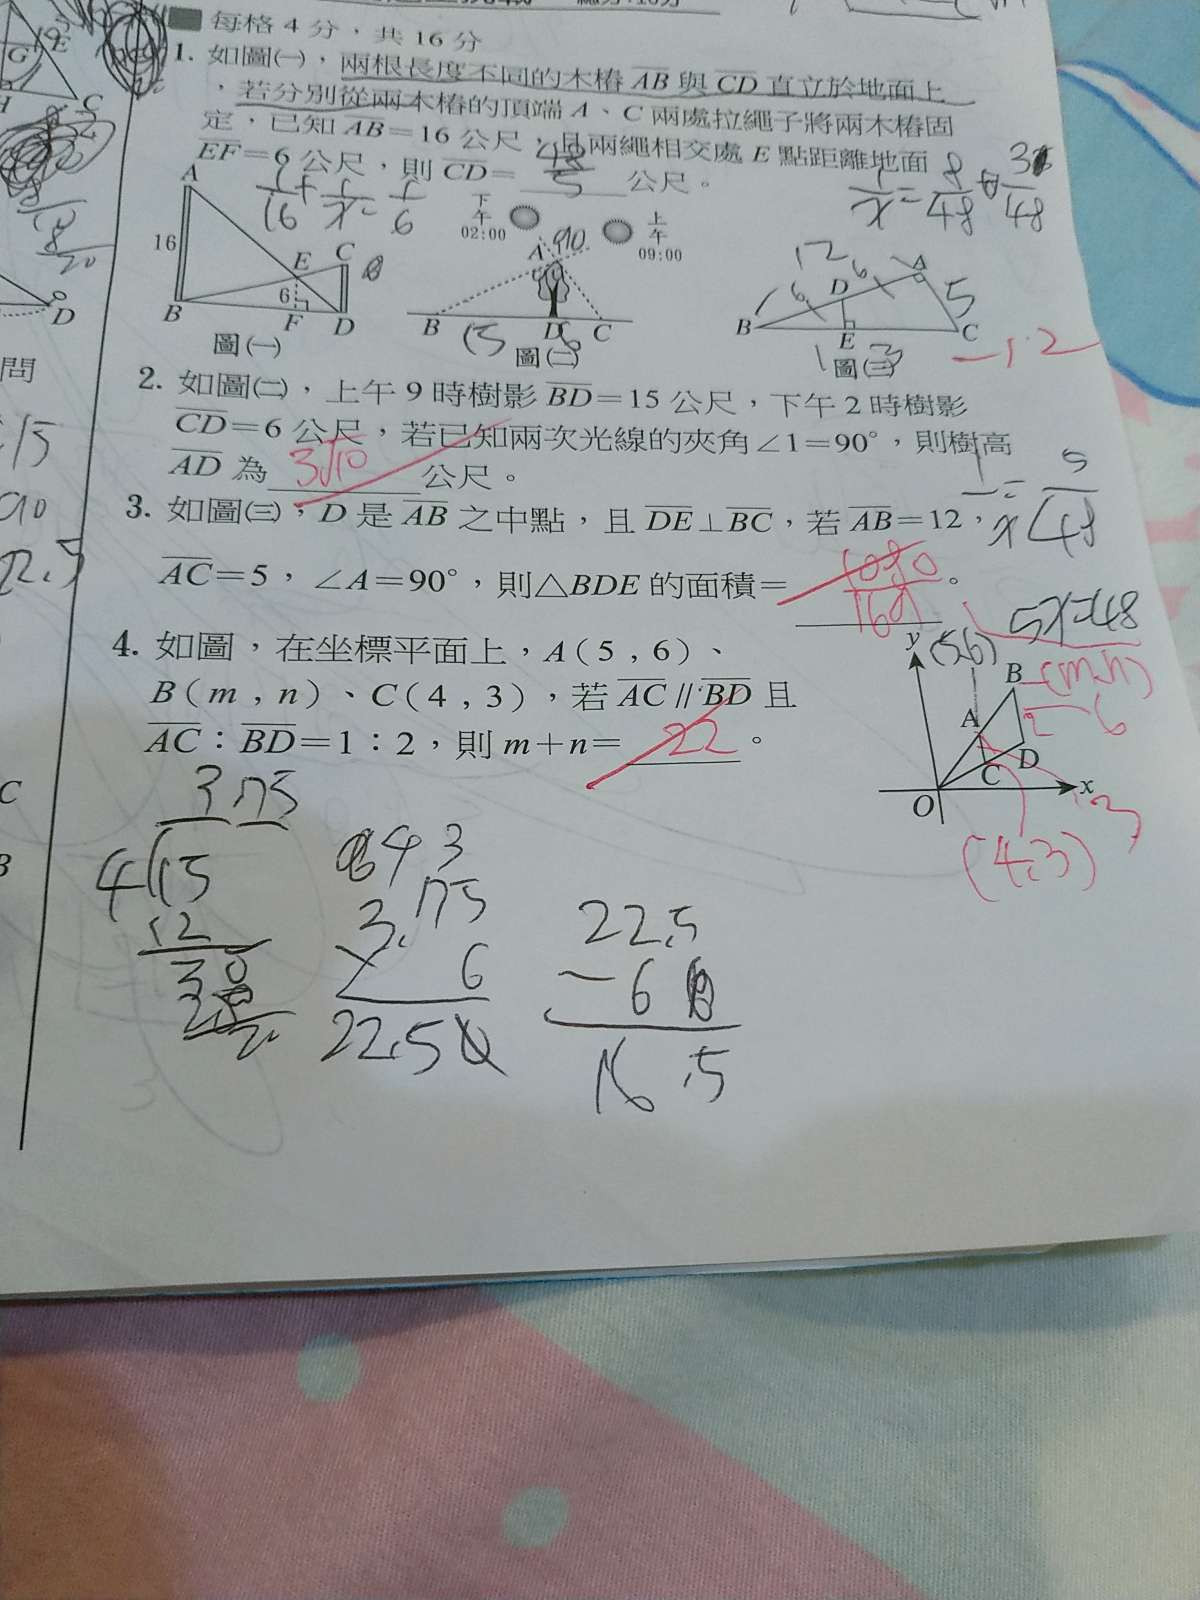 每格 4 分，共 16 分
1. 如圖(一)，兩根長度不同的木樁 AB 與 CD 直立於地面上
，若分別從兩木樁的頂端 A、C 兩處拉繩子將兩木樁固
定，已知 AB=16 公尺，且兩繩相交處 E 點距離地面
EF=6 公尺，則 CD= 48/5 公尺。
1/16 + 1/x = 1/6
下午 02:00
上午 09:00
A
16
E
C
6
B
F
D
圖(一)
A
90
B
15
D
6
C
圖(二)
12
6
A
D
6
5
B
E
C
圖(三)
-12
2. 如圖(二)，上午 9 時樹影 BD=15 公尺，下午 2 時樹影
CD=6 公尺，若已知兩次光線的夾角∠1=90°，則樹高
AD 為 3√10 公尺。
1/x = 5/48
3. 如圖(三)，D 是 AB 之中點，且 DE⊥BC，若 AB=12，
AC=5，∠A=90°，則△BDE 的面積= 1080/169 。
5x=48
4. 如圖，在坐標平面上，A(5 , 6)、
B(m , n)、C(4 , 3)，若 AC // BD 且
AC：BD=1：2，則 m+n= 22 。
y
(5,6)
B
(m,n)
A
D
C
O
x
(4,3)
3.75
4 15
12
30
28
20
43
3.75
× 6
22.5
22.5
- 6
16.5
G
E
H
C
D
問
15
90
22.5
C
B